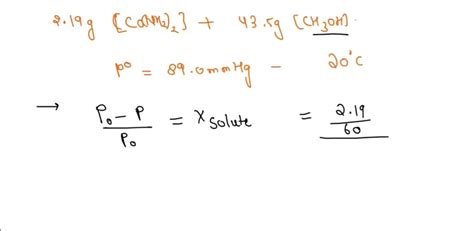 2.19g [Co(NH2)2] + 43.5g [CH3OH]
P° = 89.0mmHg - 20°C
→ P₀ - P / P₀ = x solute = 2.19 / 60